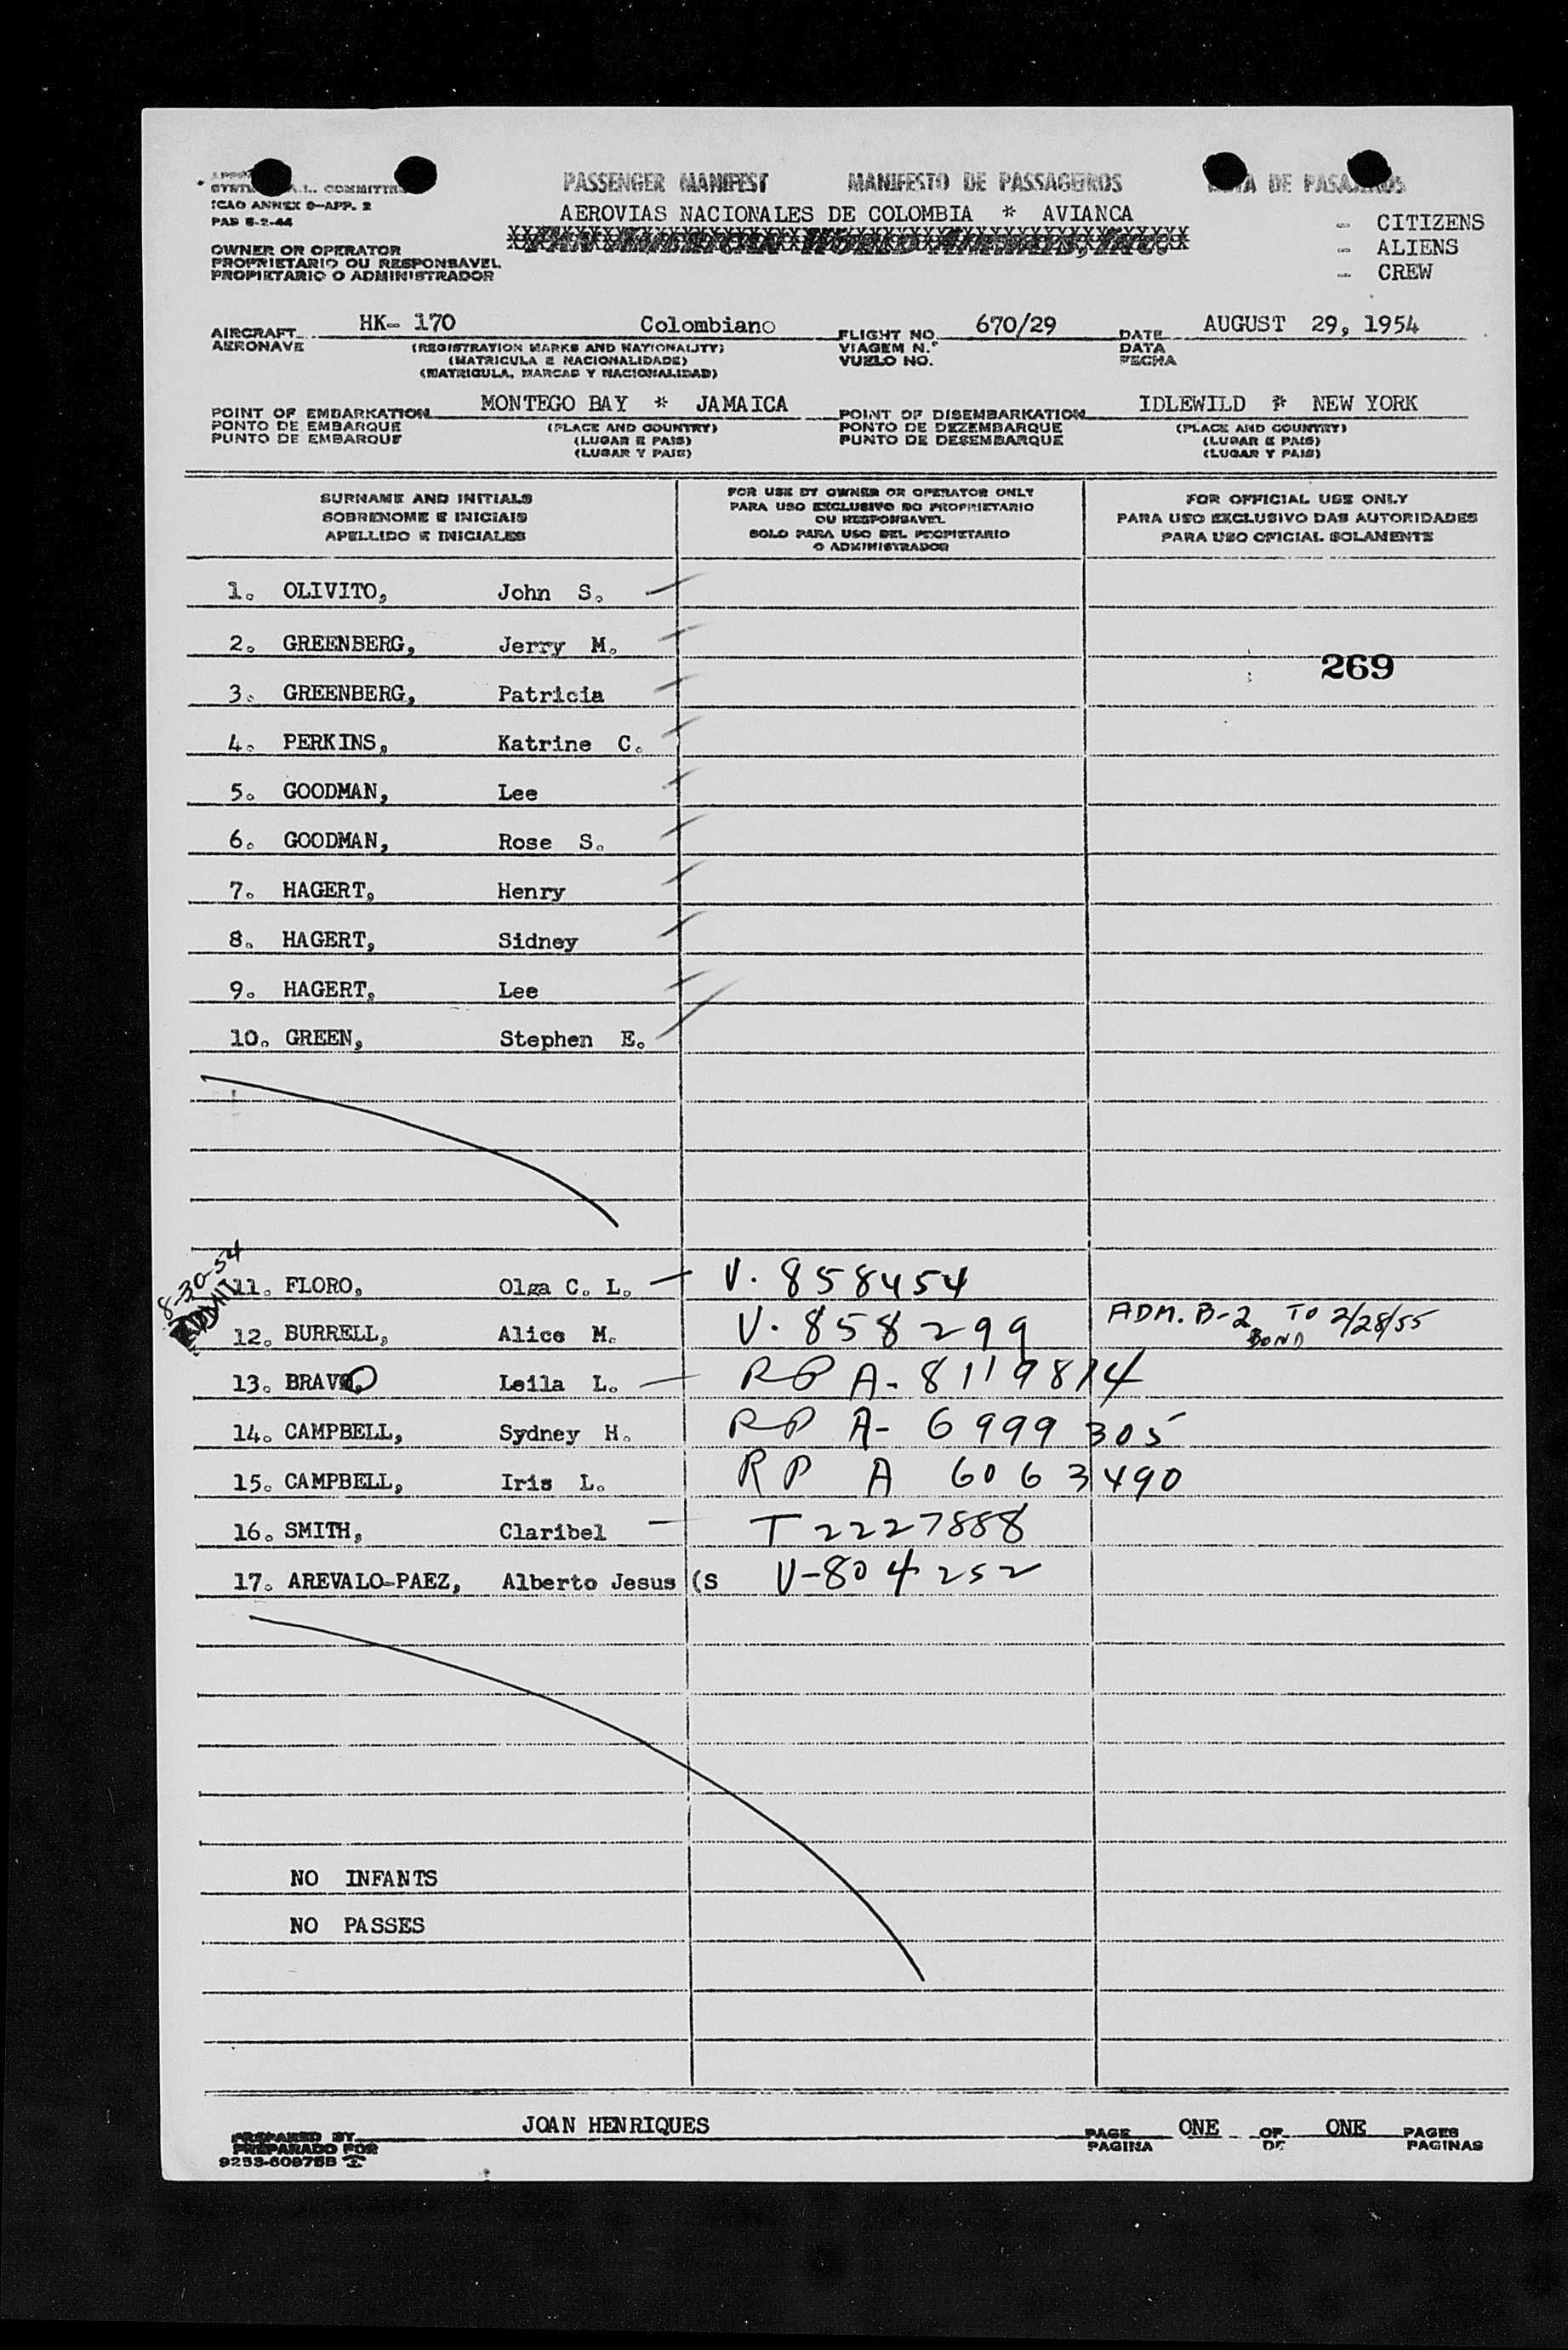 PASSENGER MANIFEST MANIFESTO DE PASSAGEIROS DE PASAJEROS
COMMITTEE
ICAO ANNEX 9-APP. 2
PAB 5-2-44
AEROVIAS NACIONALES DE COLOMBIA * AVIANCA
- CITIZENS
- ALIENS
- CREW
OWNER OR OPERATOR
PROPRIETARIO OU RESPONSAVEL
PROPIETARIO O ADMINISTRADOR
AIRCRAFT HK- 170 Colombiano FLIGHT NO. 670/29 DATE AUGUST 29, 1954
AERONAVE (REGISTRATION MARKS AND NATIONALITY) VIAGEM N.° DATA
(MATRICULA E NACIONALIDADE) VUELO NO. FECHA
(MATRICULA, MARCAS Y NACIONALIDAD)
POINT OF EMBARKATION MONTEGO BAY * JAMAICA POINT OF DISEMBARKATION IDLEWILD * NEW YORK
PONTO DE EMBARQUE (PLACE AND COUNTRY) PONTO DE DEZEMBARQUE (PLACE AND COUNTRY)
PUNTO DE EMBARQUE (LUGAR E PAIS) PUNTO DE DESEMBARQUE (LUGAR E PAIS)
(LUGAR Y PAIS) (LUGAR Y PAIS)
SURNAME AND INITIALS
SOBRENOME E INICIAIS
APELLIDO E INICIALES
FOR USE BY OWNER OR OPERATOR ONLY
PARA USO EXCLUSIVO DO PROPRIETARIO
OU RESPONSAVEL
SOLO PARA USO DEL PROPIETARIO
O ADMINISTRADOR
FOR OFFICIAL USE ONLY
PARA USO EXCLUSIVO DAS AUTORIDADES
PARA USO OFICIAL SOLAMENTE
1. OLIVITO, John S.
2. GREENBERG, Jerry M.
269
3. GREENBERG, Patricia
4. PERKINS, Katrine C.
5. GOODMAN, Lee
6. GOODMAN, Rose S.
7. HAGERT, Henry
8. HAGERT, Sidney
9. HAGERT, Lee
10. GREEN, Stephen E.
8-30-54
11. FLORO, Olga C. L. V. 858454
12. BURRELL, Alice M. V. 858299 ADM. B-2 TO 2/28/55
BOND
13. BRAVO Leila L. RP A-8119814
14. CAMPBELL, Sydney H. RP A- 6999305
15. CAMPBELL, Iris L. RP A 6063490
16. SMITH, Claribel T 2227888
17. AREVALO-PAEZ, Alberto Jesus (S V-804252
NO INFANTS
NO PASSES
PREPARED BY JOAN HENRIQUES PAGE ONE OF ONE PAGES
PREPARADO POR PAGINA DE PAGINAS